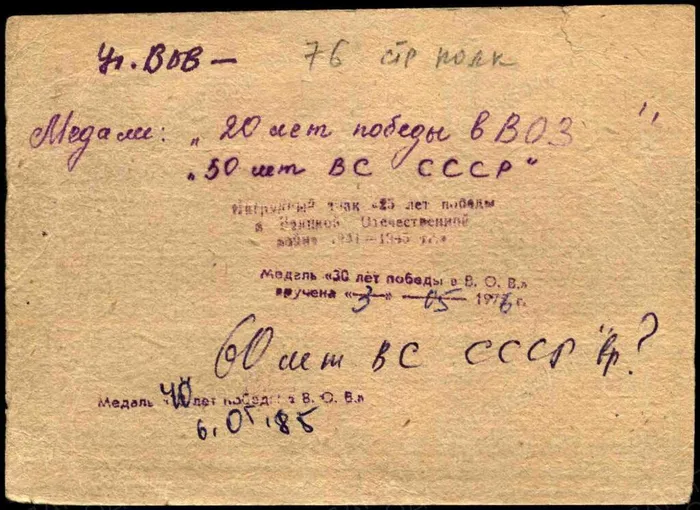 Уч. ВОВ — 76 стр полк
Медали: „20 лет победы в ВОЗ"
„50 лет ВС СССР"
Нагрудный знак «25 лет победы
в Великой Отечественной
войне 1941—1945 гг.»
Медаль «30 лет победы в В. О. В.»
вручена «3» 05 1976 г.
60 лет ВС СССР вр?
Медаль «40 лет победы в В. О. В.»
6.05.85